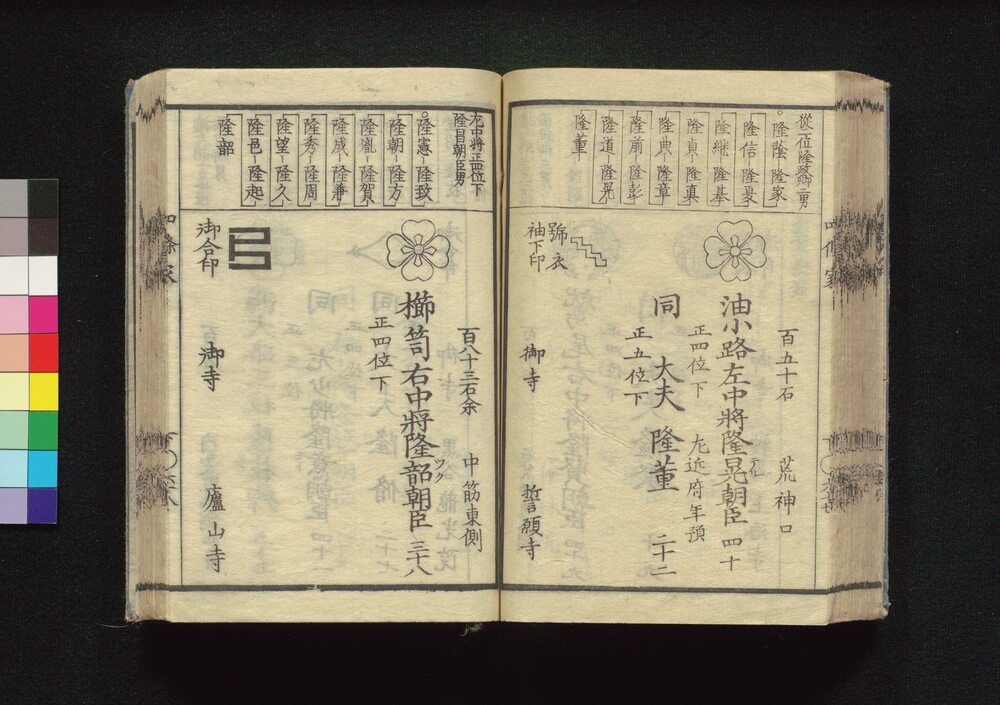 從二位隆政卿二男
隆蔭 隆家
隆信 隆夏
隆継 隆基
隆貞 隆真
隆典 隆章
隆前 隆彭
隆道 隆晃
隆董
百五十石 荒神口
油小路左中將隆晃朝臣 四十
正四位下 左近府年預
同 大夫 隆董 二十二
正五位下
號衣
袖下印
御寺 誓願寺
左中將正四位下
隆昌朝臣男
隆憲 隆致
隆朝 隆方
隆胤 隆賀
隆成 隆兼
隆秀 隆周
隆望 隆久
隆邑 隆起
隆韶
百八十三石余 中筋東側
櫛笥右中將隆韶朝臣 三十八
ツク
正四位下
御合印
御寺 廬山寺
四條家